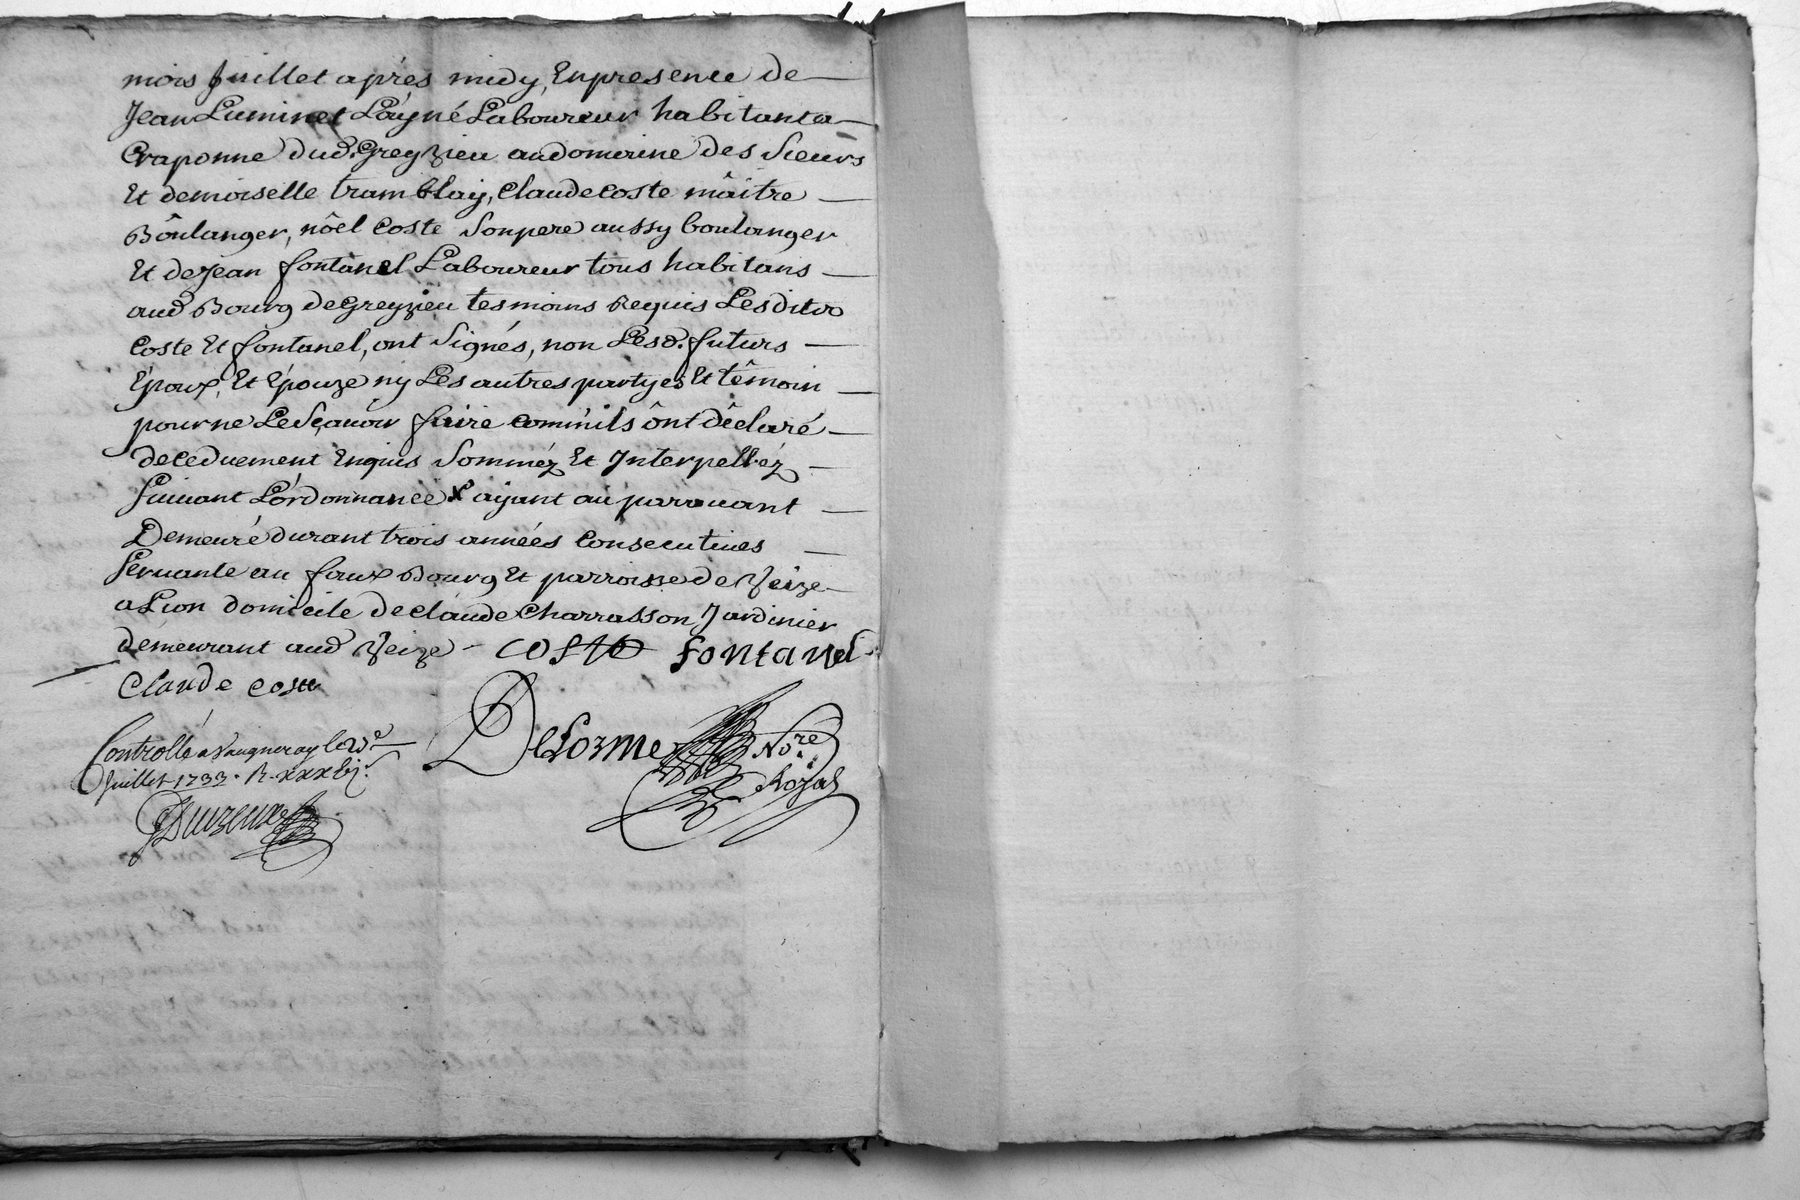 mois Juillet après midy, En presence de
Jean Luminet L'ayné Laboureur habitant a
Craponne dud. Greyzieu au domaine des Sieurs
Et demoiselle tramblay, Claude Coste mâitre
Bôulanger, nôel Coste Son pere aussy boulanger
Et de Jean fontanel Laboureur tous habitans
aud Bourg de Greyzieu tesmoins Requis Lesdits
Coste Et fontanel, ont Signés, non Lesd. futurs
Époux, Et Épouze ny Les autres partyes Et têmoin
pour ne Le Sçavoir faire comm'ils ônt dêclaré
de ce duement Enquis Somméz Et Interpelléz
Suivant L'órdonnance x ayant au paravant
Demeuré durant trois années Consecutives
Servante au faux Bourg Et parroisse de Veize
a Lion domicile de Claude Charrasson Jardinier
demeurant aud Veize - coste fontanel
Claude coste
Controllé a Vaugneray le
Juillet 1733. R. xxx
Delorme Nore
Royal